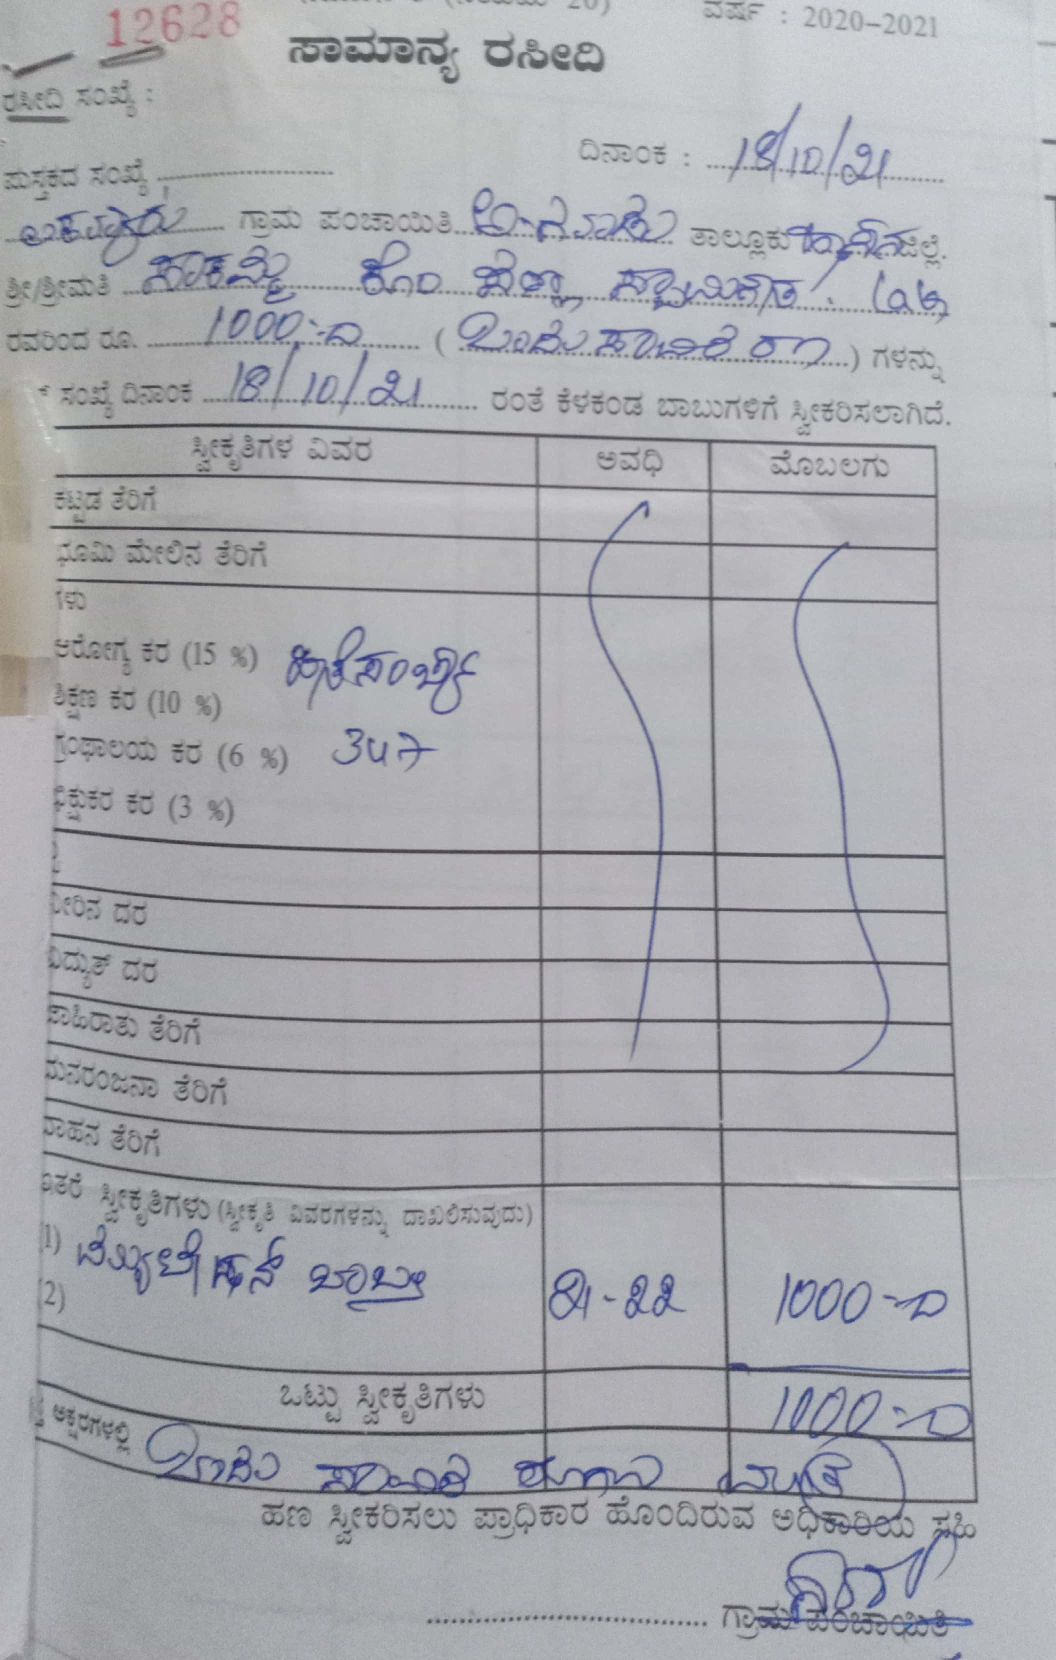 12628 ವರ್ಷ : 2020-2021
ಸಾಮಾನ್ಯ ರಸೀದಿ
ರಸೀದಿ ಸಂಖ್ಯೆ :
ದಿನಾಂಕ : 18/10/21
ಪುಸ್ತಕದ ಸಂಖ್ಯೆ
ಗ್ರಾಮ ಪಂಚಾಯಿತಿ ತಾಲ್ಲೂಕು ಹಾಸನ ಜಿಲ್ಲೆ.
ಶ್ರೀ/ಶ್ರೀಮತಿ ಕೋಂ
ರವರಿಂದ ರೂ. 1000=00 ( ಒಂದು ಸಾವಿರ ರೂ ) ಗಳನ್ನು
ಸಂಖ್ಯೆ ದಿನಾಂಕ 18/10/21 ರಂತೆ ಕೆಳಕಂಡ ಬಾಬುಗಳಿಗೆ ಸ್ವೀಕರಿಸಲಾಗಿದೆ.
ಸ್ವೀಕೃತಿಗಳ ವಿವರ ಅವಧಿ ಮೊಬಲಗು
ಕಟ್ಟಡ ತೆರಿಗೆ
ಭೂಮಿ ಮೇಲಿನ ತೆರಿಗೆ
ಗಳು
ಆರೋಗ್ಯ ಕರ (15 %)
ಶಿಕ್ಷಣ ಕರ (10 %)
ಗ್ರಂಥಾಲಯ ಕರ (6 %) 347
ಭಿಕ್ಷುಕರ ಕರ (3 %)
ನೀರಿನ ದರ
ವಿದ್ಯುತ್ ದರ
ಜಾಹಿರಾತು ತೆರಿಗೆ
ಮನರಂಜನಾ ತೆರಿಗೆ
ವಾಹನ ತೆರಿಗೆ
ಇತರೆ ಸ್ವೀಕೃತಿಗಳು (ಸ್ವೀಕೃತಿ ವಿವರಗಳನ್ನು ದಾಖಲಿಸುವುದು)
1) ಬಾಬ್ತು 21-22 1000=00
2)
ಒಟ್ಟು ಸ್ವೀಕೃತಿಗಳು 1000=00
ಅಕ್ಷರಗಳಲ್ಲಿ ಒಂದು ಸಾವಿರ ರೂಪಾಯಿ ಮಾತ್ರ
ಹಣ ಸ್ವೀಕರಿಸಲು ಪ್ರಾಧಿಕಾರ ಹೊಂದಿರುವ ಅಧಿಕಾರಿಯ ಸಹಿ
ಗ್ರಾಮ ಪಂಚಾಯಿತಿ